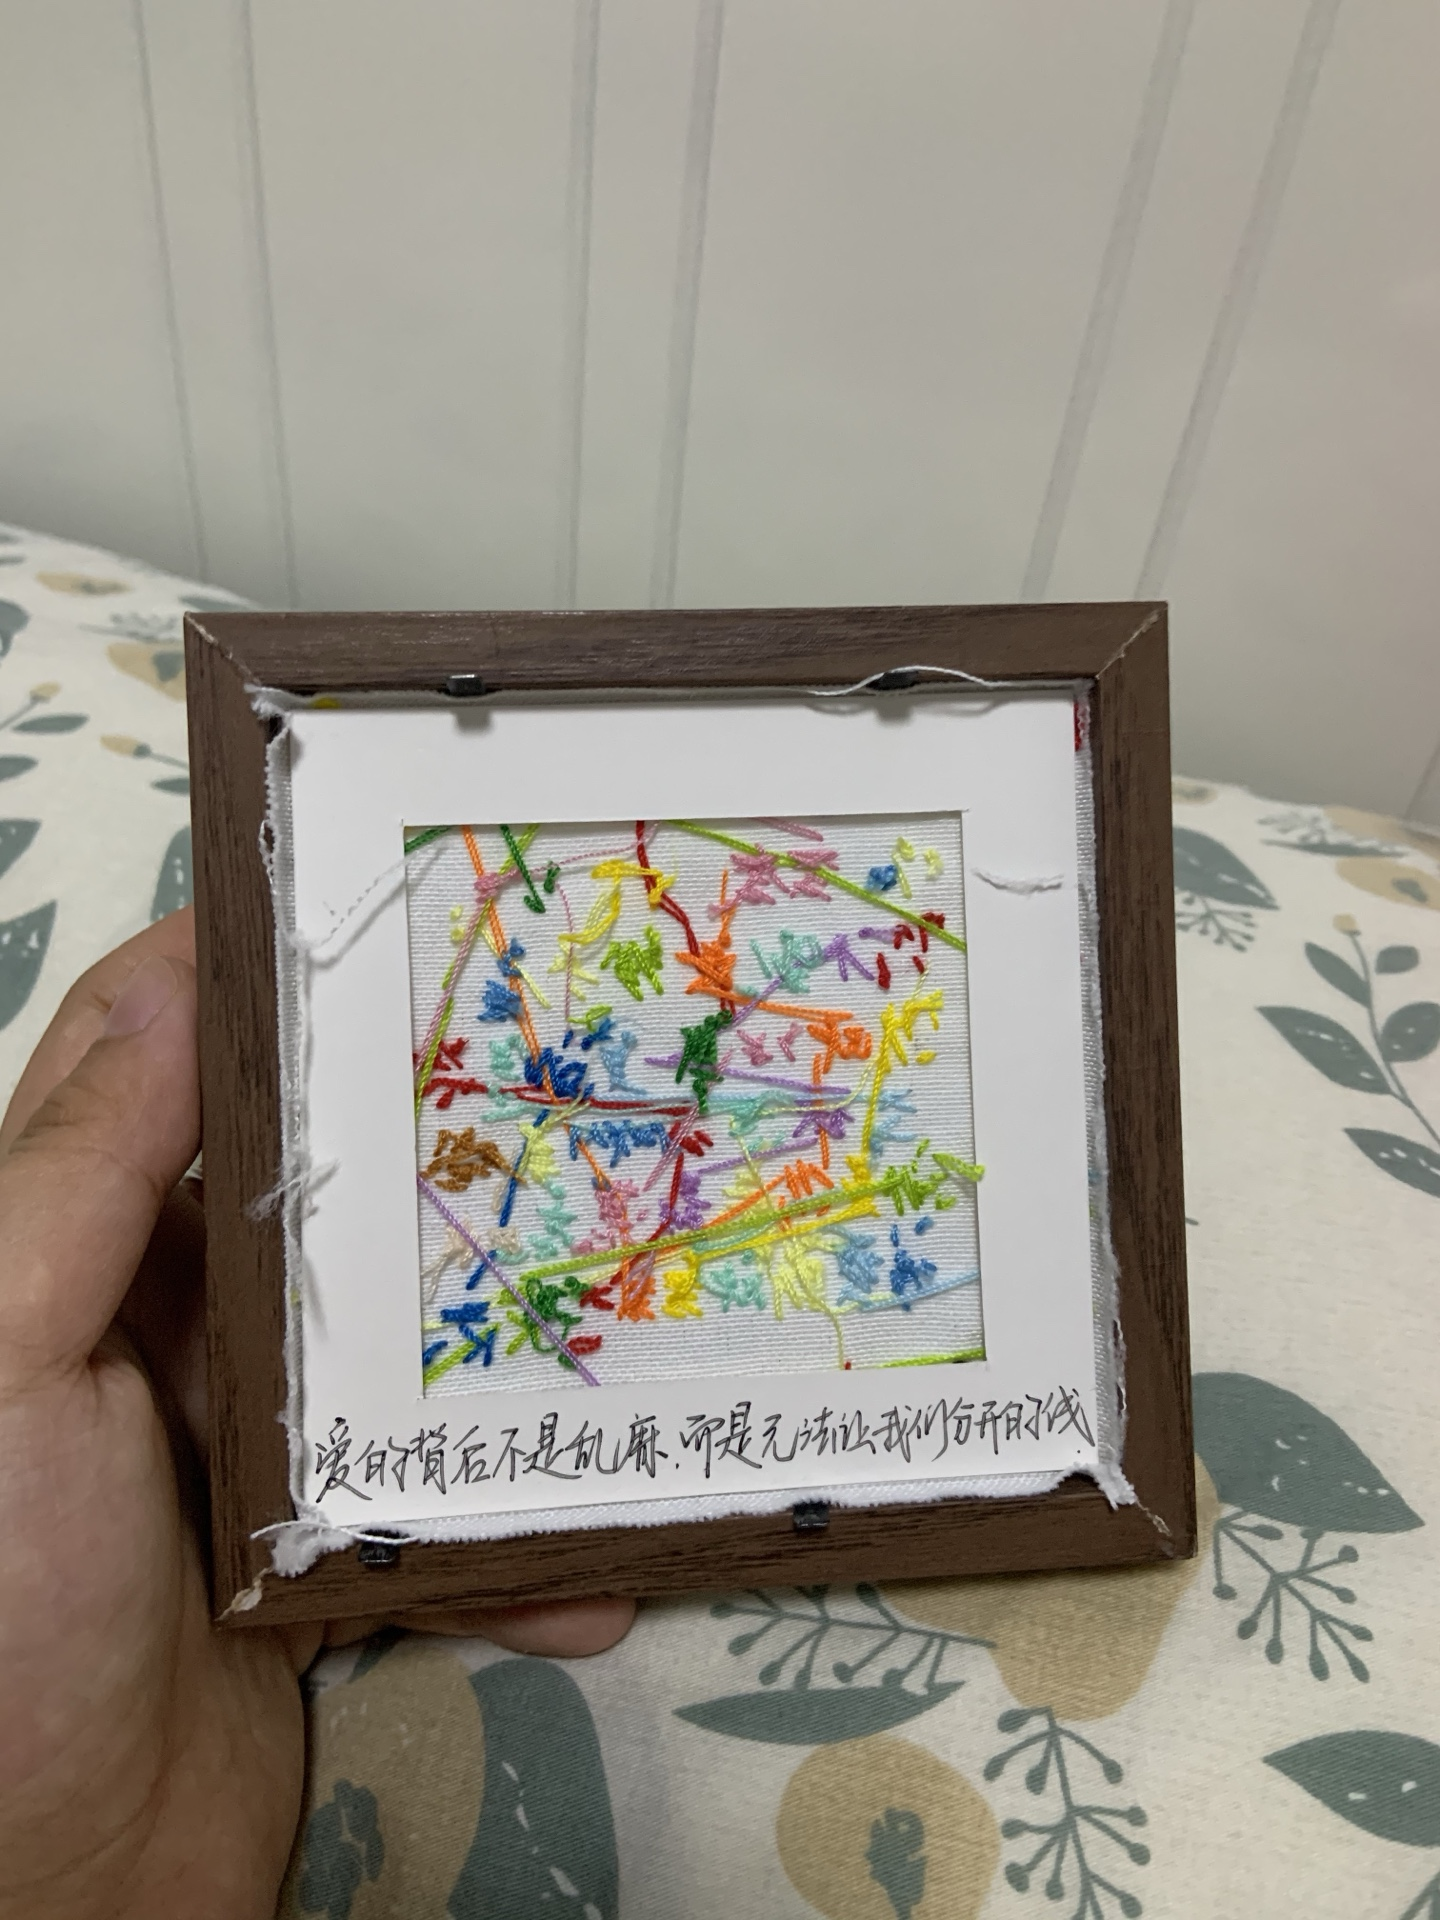 爱的背后不是乱麻.而是无法让我们分开的线.